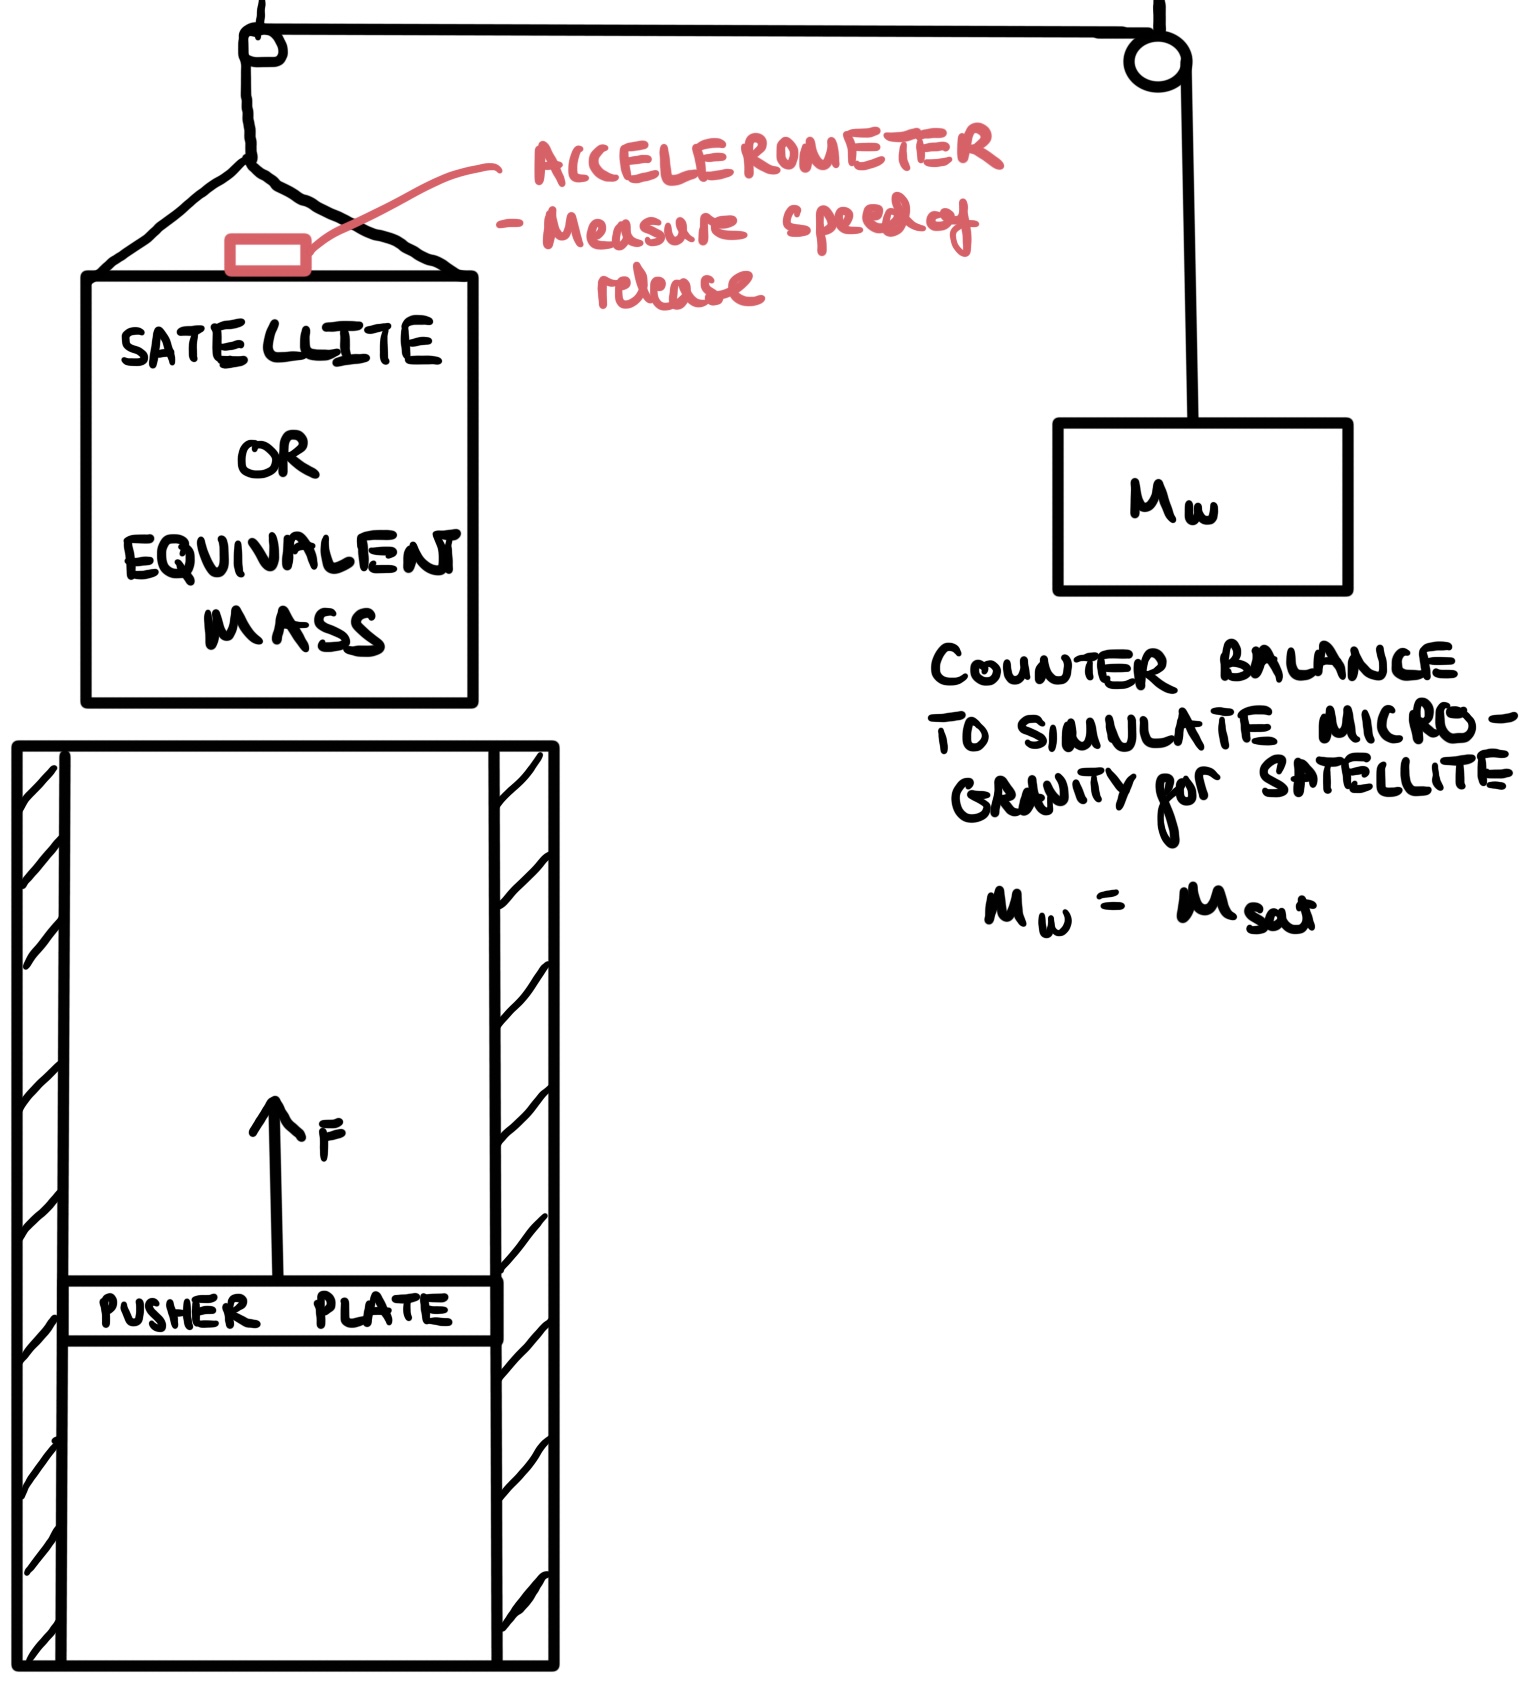 ACCELEROMETER
- Measure speed of
release
SATELLITE
OR
EQUIVALENT
MASS
Mw
COUNTER BALANCE
TO SIMULATE MICRO-
GRAVITY for SATELLITE
Mw = Msat
F
PUSHER PLATE